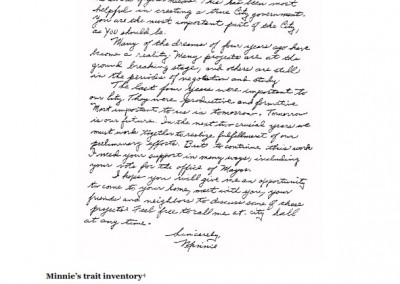 helpful in creating a true City government.
You are the most important part of the City,
as YOU should be.
Many of the dreams of four years ago have
become a reality. Many projects are at the
ground breaking stage, and others are still
in the periods of negotiation and study.
The last four years were important to
our City. They were productive and formative
Most important to us is tomorrow. Tomorrow
is our future. In the next two crucial years we
must work together to realize fulfillment of our
preliminary efforts. But to continue this work
I need your support in many ways, including
your vote for the office of Mayor.
I hope you will give me an opportunity
to come to your home, meet with you, your
friends and neighbors to discuss some of these
projects. Feel free to call me at city hall
at any time.
Sincerely,
Minnie
Minnie's trait inventory⁴